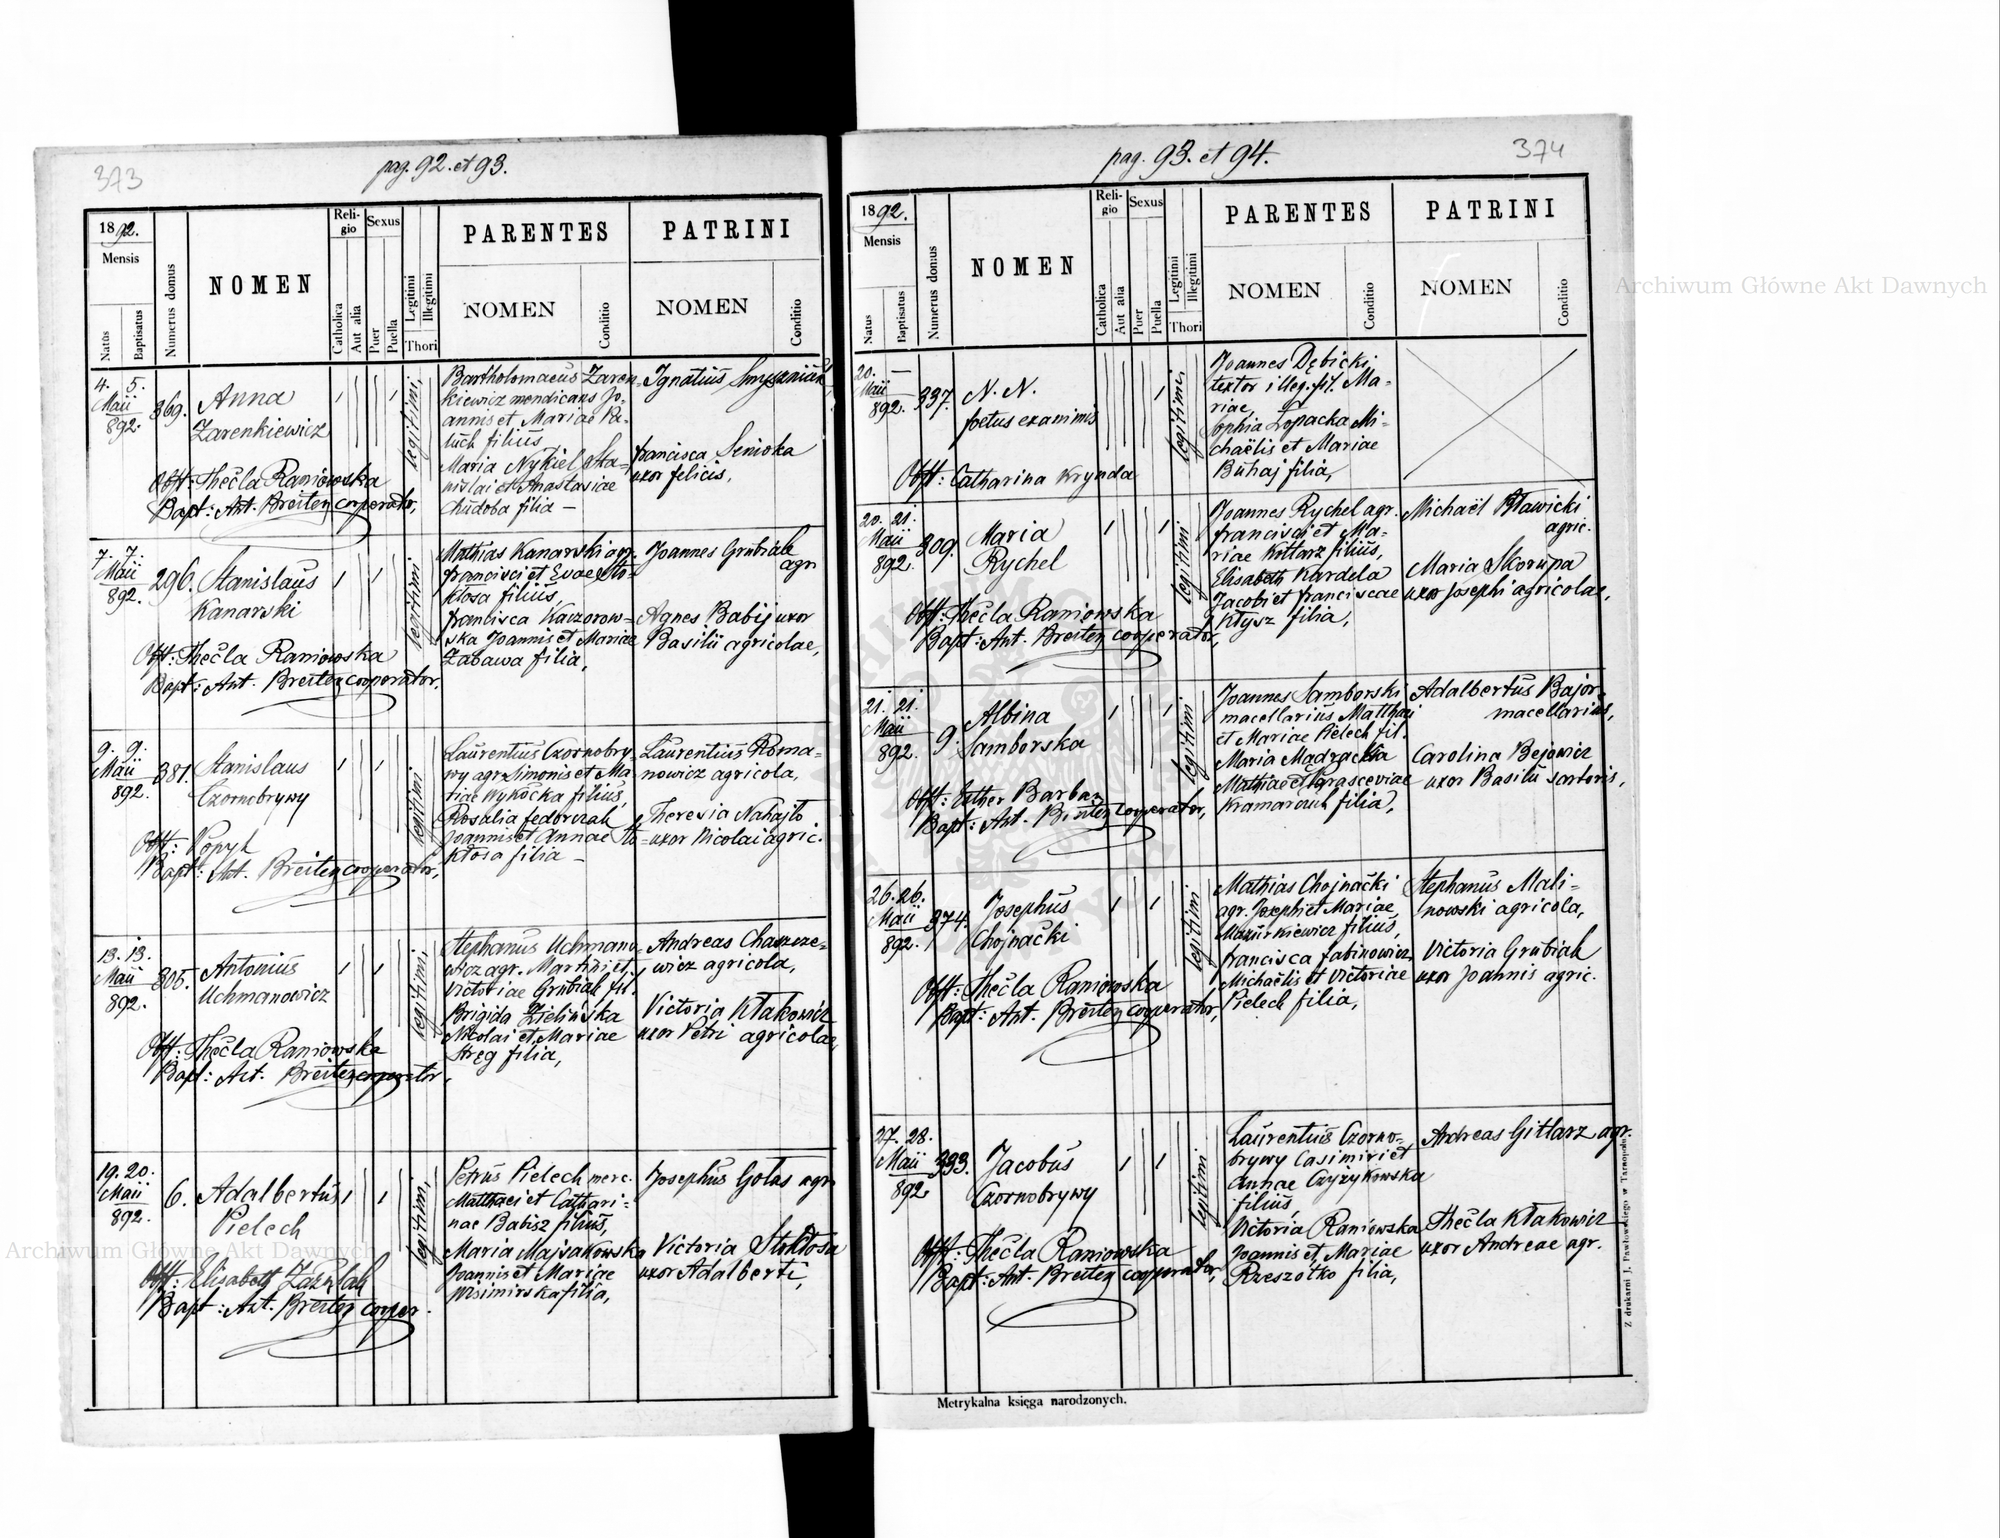 373
pag. 92. et 93.
1892.
Mensis
Natus
Baptisatus
Numerus domus
NOMEN
Religio
Catholica
Aut alia
Sexus
Puer
Puella
Legitimi
Illegitimi
Thori
PARENTES
NOMEN
Conditio
PATRINI
NOMEN
Conditio
4. 5.
Maii
892.
369.
Anna
Zarenkiewicz
Obst: Thecla Raniowska
Bapt: Ant. Breiter cooperator,
legitimi,
Bartholomaeus Zaren-
kiewicz mendicans Jo-
annis et Mariae
filius
Maria Nykiel Sta-
nislai et Anastasiae
Chudoba filia —
Ignatius
Francisca Senioka
uxor Felicis,
7. 7.
Maii
892.
296.
Stanislaus
Kanarski
Obst: Thecla Raniowska
Bapt: Ant. Breiter cooperator,
legitimi
Mathias Kanarski agr.
Francisci et Evae Sto-
kłosa filius,
Francisca Kaczorow-
ska Joannis et Mariae
Zabawa filia,
Joannes Grubiak
agr.
Agnes Babij uxor
Basilii agricolae,
9. 9.
Maii
892.
381.
Stanislaus
Czornobrywy
Obst: Popyk
Bapt: Ant. Breiter cooperator,
legitimi
Laurentius Czornobry
wy agr. Simonis et Ma-
riae Wykocka filius,
Rosalia Fedorczak
Joannis et Annae Sto-
kłosa filia —
Laurentius Roma-
nowicz agricola,
Theresia Nahajło
uxor Nicolai agric.
13. 13.
Maii
892.
305.
Antonius
Uchmanowicz
Obst: Thecla Raniowska
Bapt: Ant. Breiter cooperator,
legitimi,
Stephanus Uchmano-
wicz agr. Martini et
Victoriae Grubiak fil.
Brigida Zielińska
Nicolai et Mariae
Stręg filia,
Andreas Chaszcze-
wicz agricola,
Victoria Kłakowicz
uxor Petri agricolae,
19. 20.
Maii
892.
6.
Adalbertus
Pielech
Obst: Elisabeth Zazulak
Bapt: Ant. Breiter cooper.
legitimi,
Petrus Pielech merc.
Matthaei et Cathari-
nae Babisz filius,
Maria Majsakowska
Joannis et Mariae
filia,
Josephus Gołas agr.
Victoria Stokłosa
uxor Adalberti,
pag. 93. et 94.
374
1892.
Mensis
Natus
Baptisatus
Numerus domus
NOMEN
Religio
Catholica
Aut alia
Sexus
Puer
Puella
Legitimi
Illegitimi
Thori
PARENTES
NOMEN
Conditio
PATRINI
NOMEN
Conditio
20. —
Maii
892.
337.
N. N.
foetus exanimis
Obst: Catharina Krynda
legitimi,
Joannes Dębicki
textor illeg. fil. Ma-
riae,
Sophia Łopacka Mi-
chaëlis et Mariae
Buhaj filia,
20. 21.
Maii
892.
309.
Maria
Rychel
Obst: Thecla Raniowska
Bapt: Ant. Breiter cooperator,
legitimi
Joannes Rychel agr.
Francisci et Ma-
riae Kitlarz filius,
Elisabeth Kardela
Jacobi et Franciscae
Kłysz filia,
Michaël Bławicki
agric.
Maria Skorupa
uxor Josephi agricolae,
21. 21.
Maii
892.
9.
Albina
Samborska
Obst: Esther Barbar
Bapt: Ant. Breiter cooperator,
legitimi
Joannes Samborski
macellarius Matthaei
et Mariae Pielech fil.
Maria Mądzacka
Mathiae et Parasceviae
Kramarczuk filia,
Adalbertus Bajor-
macellarius,
Carolina Bejowicz
uxor Basilii sartoris,
26. 26.
Maii
892.
374.
Josephus
Chojnacki
Obst: Thecla Raniowska
Bapt: Ant. Breiter cooperator,
legitimi
Mathias Chojnacki
agr. Josephi et Mariae
Mazurkiewicz filius,
Francisca Fabinowicz
Michaëlis et Victoriae
Pielech filia,
Stephanus Mali-
nowski agricola,
Victoria Grubiak
uxor Joannis agric.
27. 28.
Maii
892
393.
Jacobus
Czornobrywy
Obst: Thecla Raniowska
Bapt: Ant. Breiter cooperator,
legitimi
Laurentius Czorno-
brywy Casimiri et
Annae Czyżykowska
filius,
Victoria Raniowska
Joannis et Mariae
Rzeszotko filia,
Andreas Gitlarz agr.
Thecla Kłakowicz
uxor Andreae agr.
Metrykalna księga narodzonych.
Z drukarni J. Pawłowskiego w Tarnopolu.
Archiwum Główne Akt Dawnych
Archiwum Główne Akt Dawnych